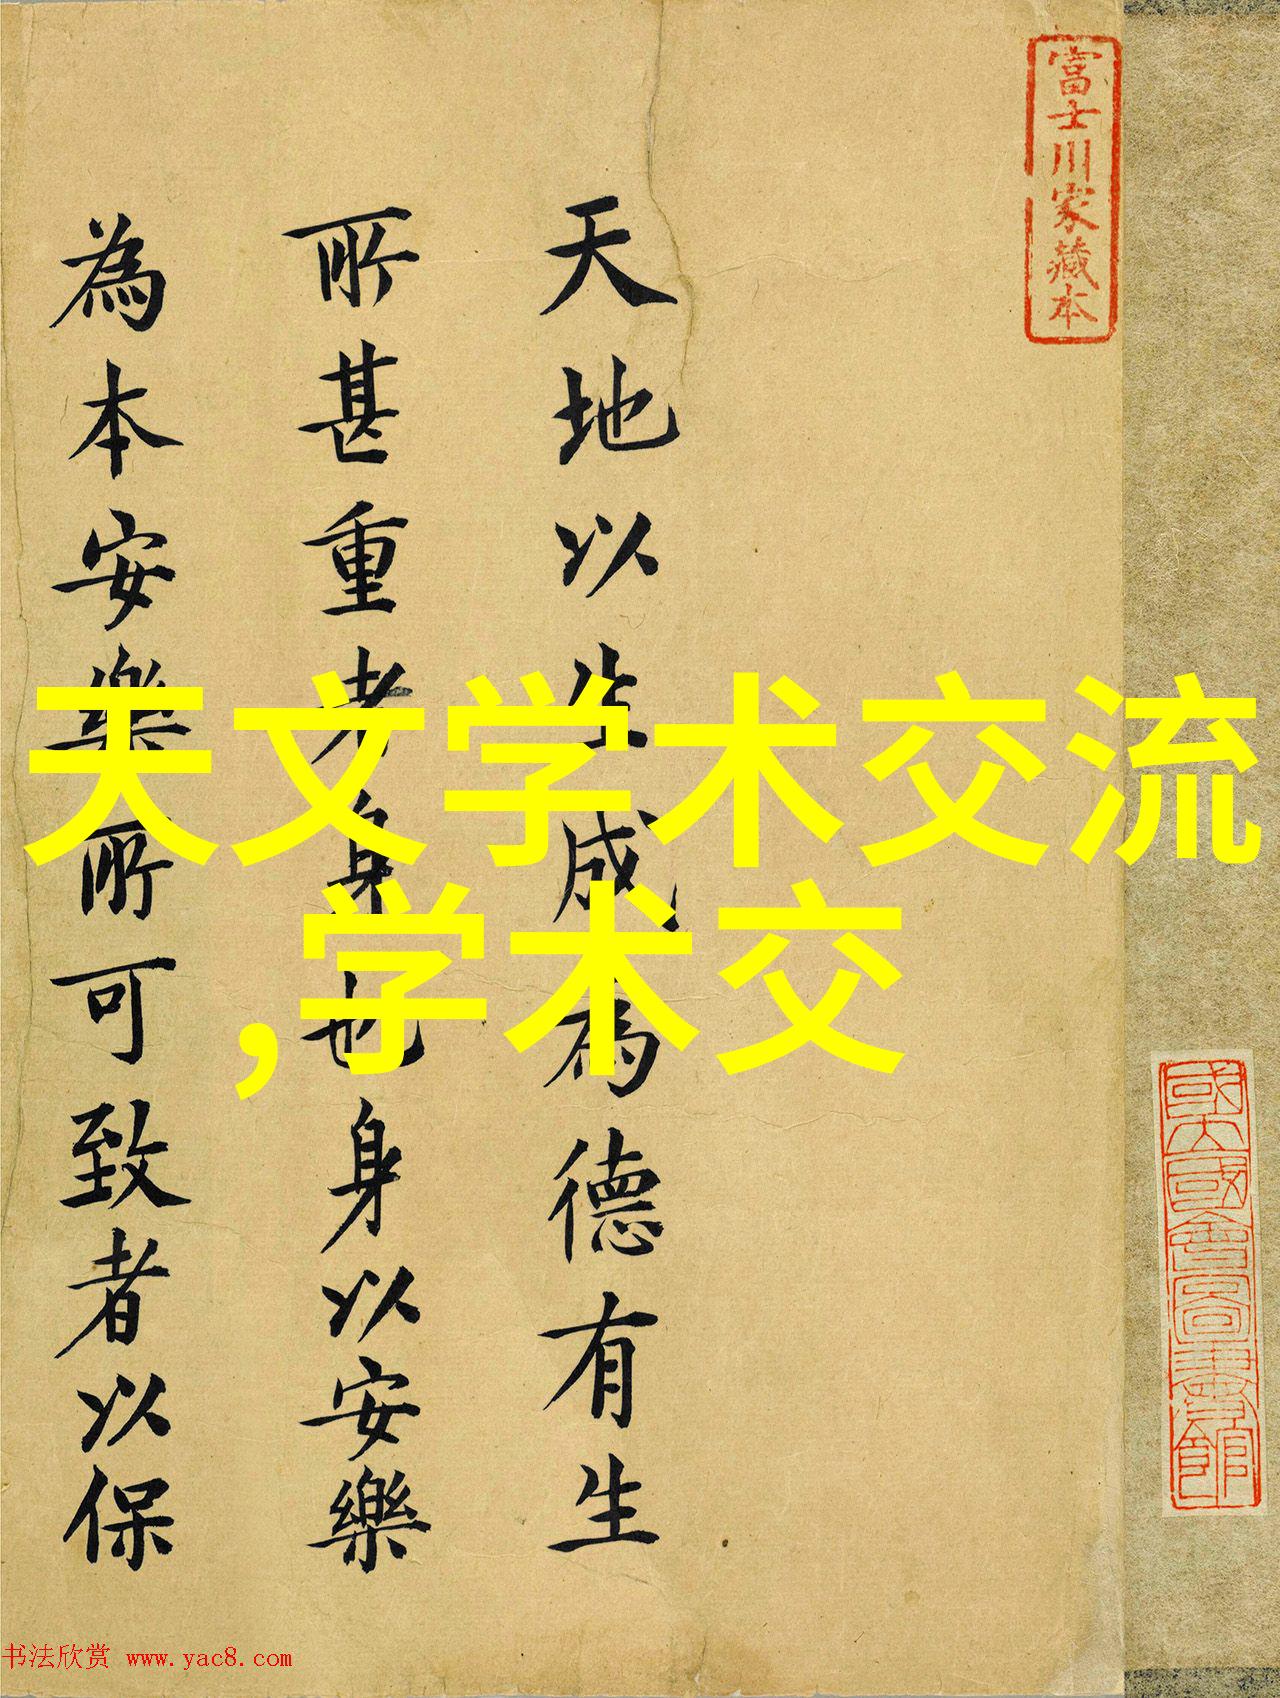 富士川家藏本
天地以生成為德有生
所甚重者身也身以安樂
為本安樂所可致者以保
天文学术交流
,学术交
书法欣赏 www.yac8.com